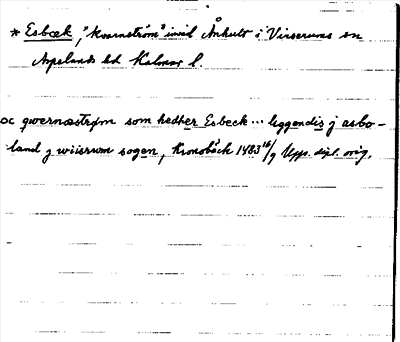 * Esbæk, "kvarnström" invid Ånhult i Virserums sn
Aspelands hd Kalmar l.
oc qwernæstrøm som hedher Esbeck... liggendis j asbo-
land j wiisrwm sogen, Kronobäck 1483 16/9 Upps. dipl. orig.